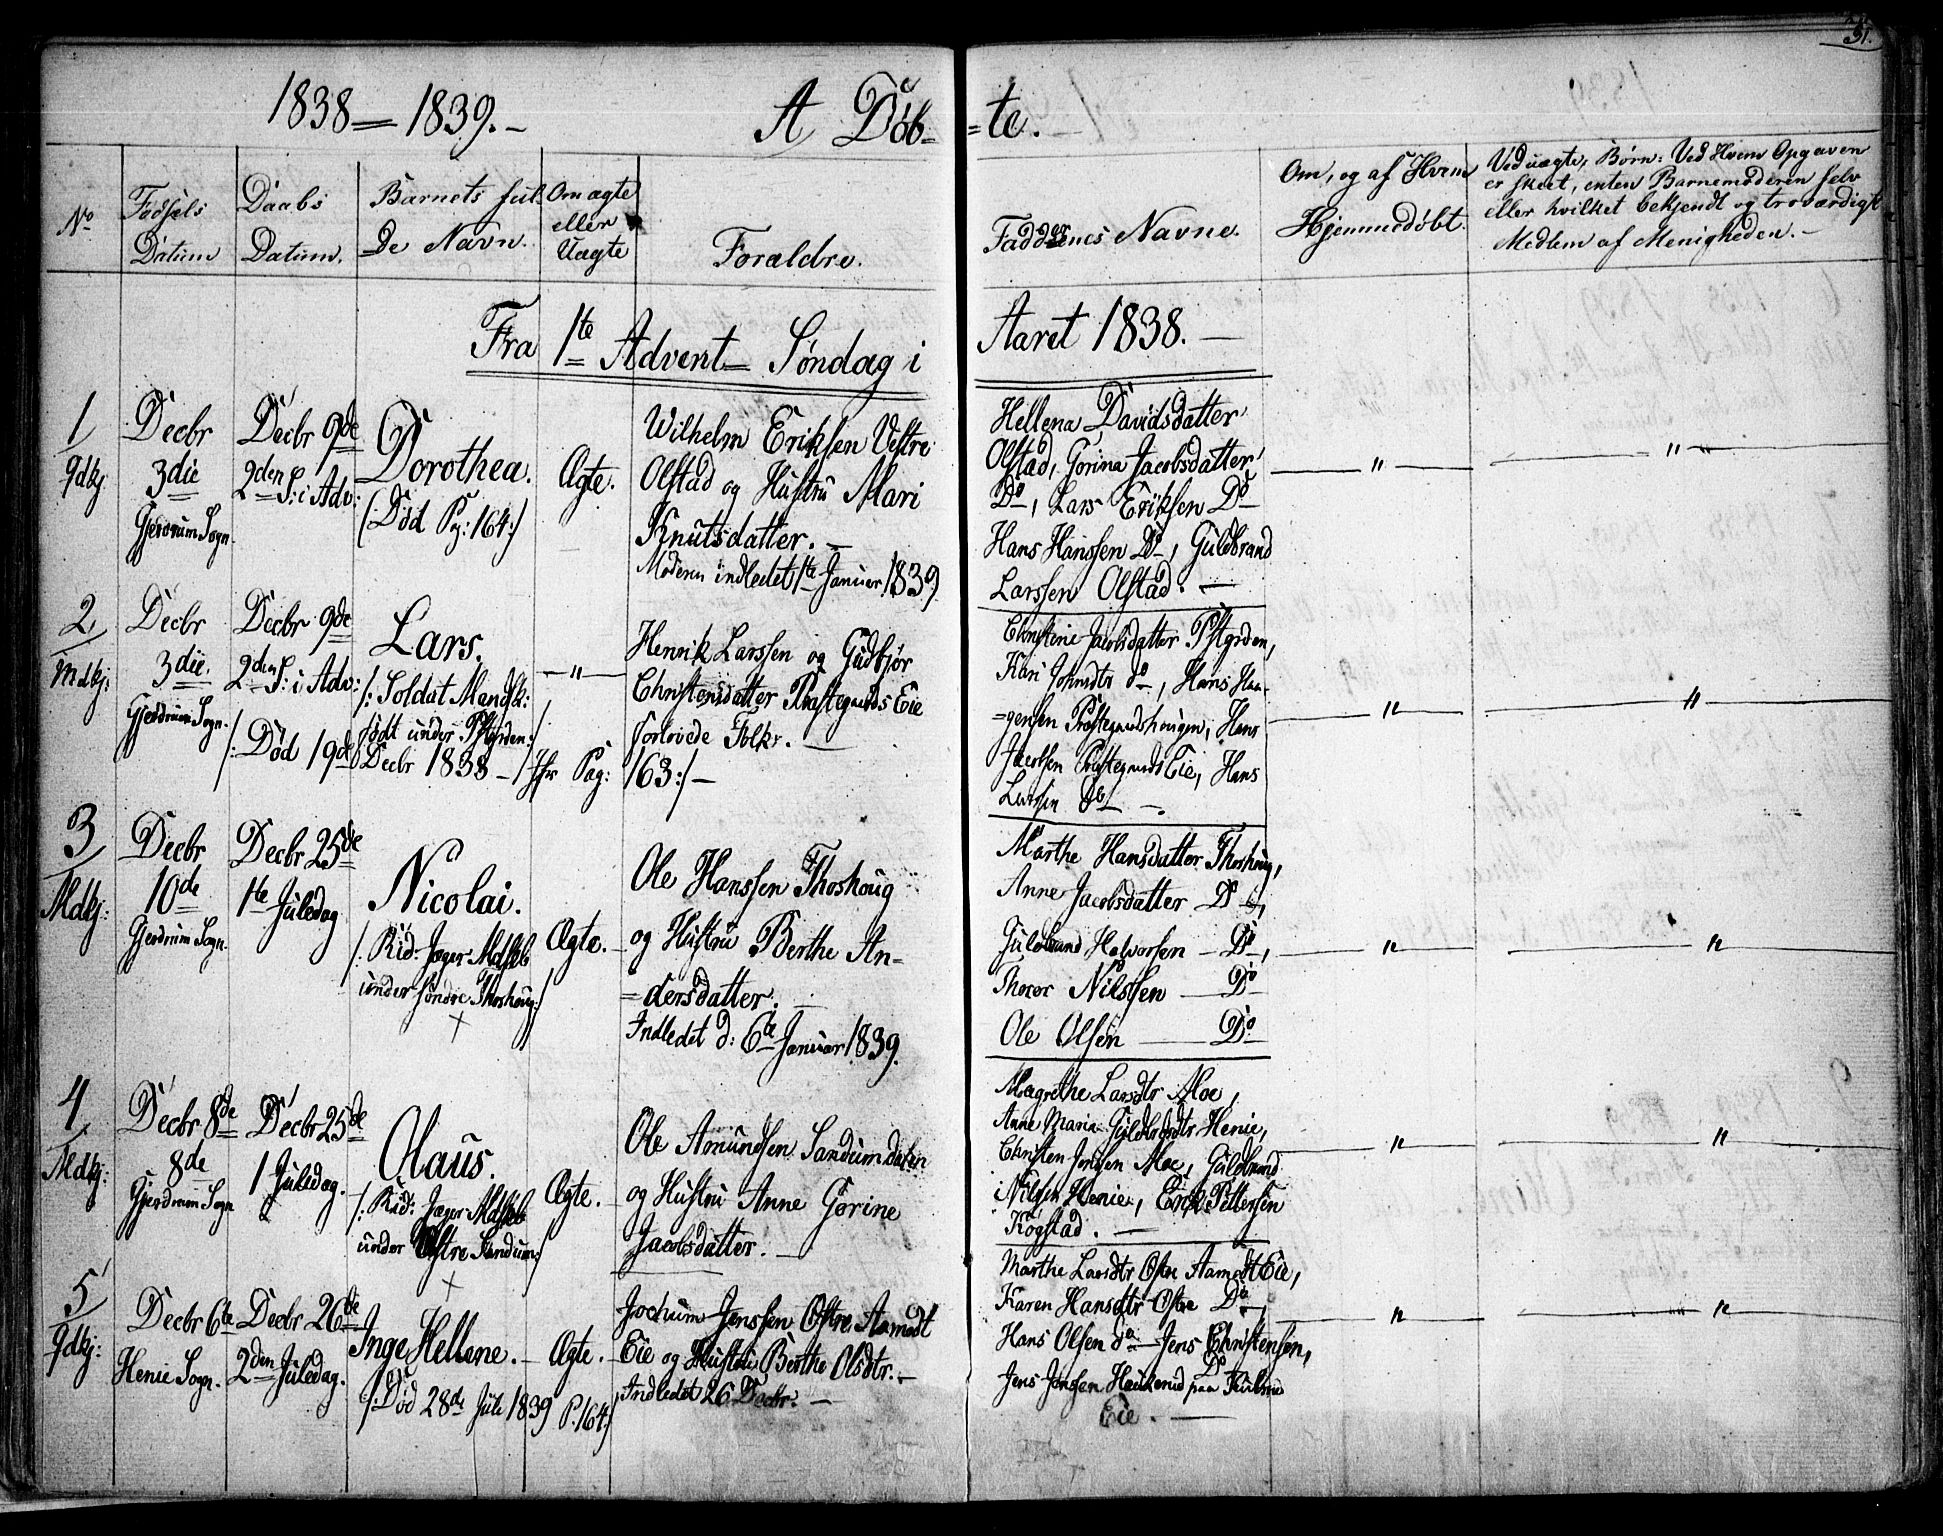 31.
1838 — 1839. –
A Døb- =te.
No
Fødsels Datum
Daabs Datum.
Barnets ful
De Navn.
Om ægte
eller
Uægte
Forældre.
Faddernes Navne.
Om, og af Hvem
Hjemmedøbt.
Ved uægte, Børn: Ved Hvem Opgaven
er skeet, enten Barnemoderen selv
eller hvilket bekjendt og troværdigt
Medlem af Menigheden. –
Fra 1te Advent – Søndag i Aaret 1838. —
1
Qdkj:
Decbr
3die
Gjerdrum Sogn.
Decbr 9de
2den S: i Adv:
Dorothea.
(: Død Pag: 164:)
Ægte.
Wilhelm Eriksen Vestre
Olstad og Hustru Mari
Knutsdatter. —
Moderen indledet 1te Januar 1839
Hellena Davidsdatter
Olstad, Gorina Jacobsdatter
Do, Lars Eriksen Do
Hans Hanssen Do, Guldbrand
Larssen Olstad. —
"
"
2
Mdkj:
Decbr
3die.
Gjerdrum Sogn.
Decbr 9de
2den S: i Adv:
Lars.
/: Soldat Mandsk:
født under Pstgrden:/
/: Død 19de Decbr 1838 – Jfr Pag: 163:/ –
"
Henrik Larssen og Gudbjør
Christensdatter Præstegaards Eie
forlovede Folk. —
Christine Jacobsdatter Pstgrden,
Kari Johnsdtr do, Hans Haa-
=gensen Præstegaardshaugen, Hans
Jacobsen Præstegaards Eie, Hans
Larssen do –
"
"
3
Mdkj:
Decbr
10de
Gjerdrum Sogn.
Decbr 25de
1te Juledag
Nicolai.
/: Rid: Jæger Mdskb
under søndre Thoshoug:/
+
Ægte.
Ole Hanssen Thoshoug
og Hustru Berthe An-
=dersdatter. —
Indledet d: 6te Januar 1839.
Marthe Hansdatter Thoshoug,
Anne Jacobsdatter Do,
Guldbrand Halvorsen – Do,
Thorer Nilssen — Do
Ole Olsen — Do
"
"
4
Mdkj:
Decbr 8de
8de
Gjerdrum Sogn
Decbr 25de
1 Juledag.
Olaus.
/: Rid: Jæger Mdskb
under Østre Sandum:/
+
Ægte.
Ole Amundsen Sandumdalen
og Hustru Anne Gorine
Jacobsdatter. —
Magrethe Larsdtr Moe,
Anne Maria Guldbrdsdtr Henie,
Christen Jonssen Moe, Guldbrand
Nilsen Henie, Erik Pettersen
Kogstad. —
"
"
5
Qdkj:
Decbr 6te
Henie Sogn.
Decbr 26de
2den Juledag.
Inge Hellene. –
/: Død 28de Juli 1839 P. 164:/
Ægte. –
Jochum Jenssen Østre Aamodt
Eie og Hustru Berthe Olsdtr. –
Indledet 26 Decbr. –
Marthe Larsdtr Østre Aamodt Eie,
Karen Hansdtr Østre Do,
Hans Olsen do – Jens Christensen, Do
Jens Jonssen paa
Eie. —
"
"